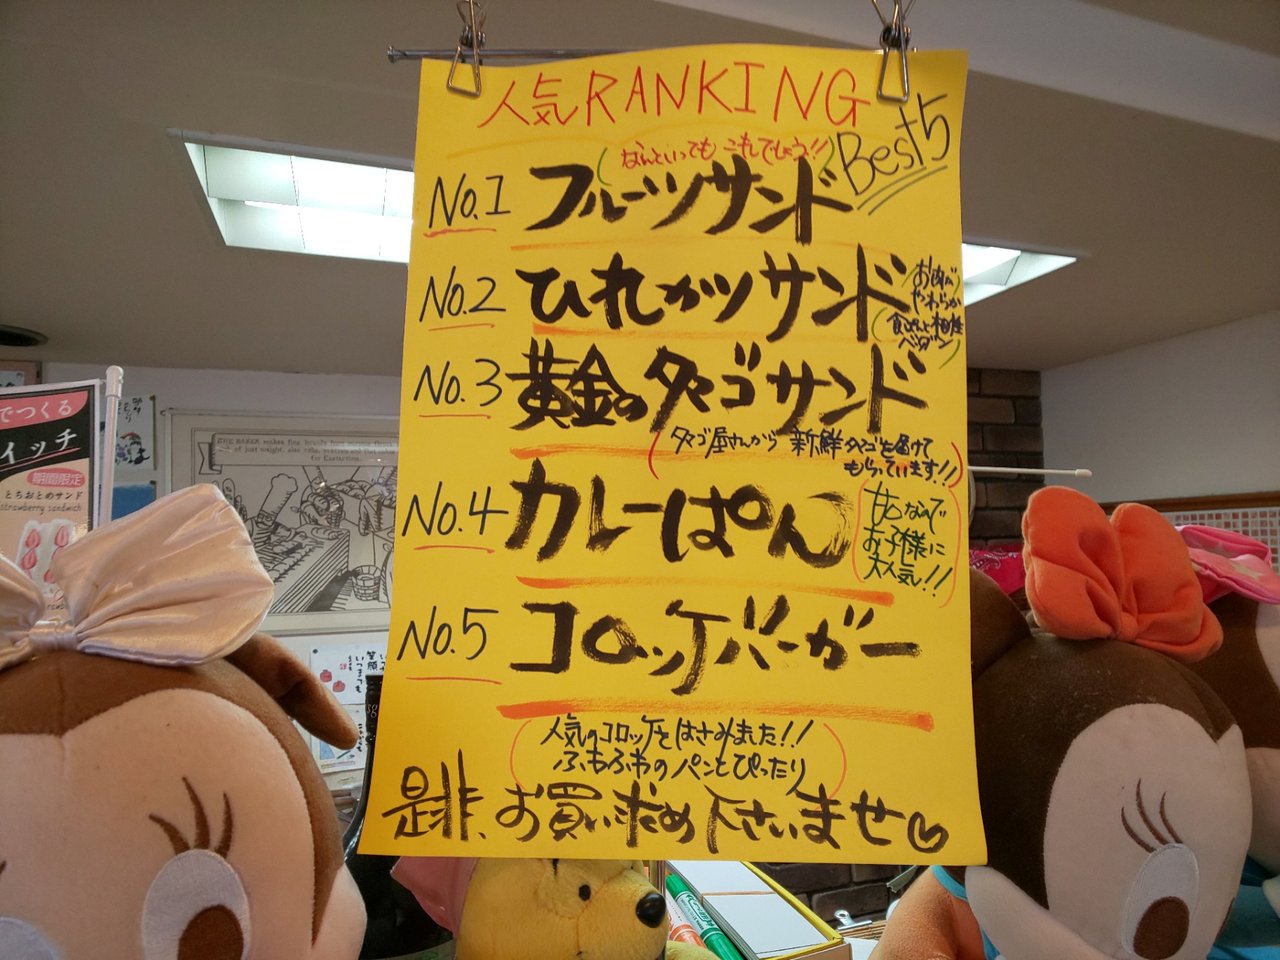 人気RANKING
Best5
なんといっても これでしょう!!
No.1 フルーツサンド
No.2 ひれカツサンド
お肉が
やわらか
食ぱんと相性
バツグン
No.3 黄金のタマゴサンド
タマゴ屋さんから 新鮮タマゴを届けて
もらっています!!
No.4 カレーぱん
甘口なので
お子様に
大人気!!
No.5 コロッケバーガー
人気のコロッケをはさみました!!
ふわふわのパンとぴったり
是非、お買い求め下さいませ♡
でつくる
イッチ
期間限定
とちおとめサンド
strawberry sandwich
THE BAKER makes fine breads from
of just weight, also
for Eastertime.
笑顔
いつまでも